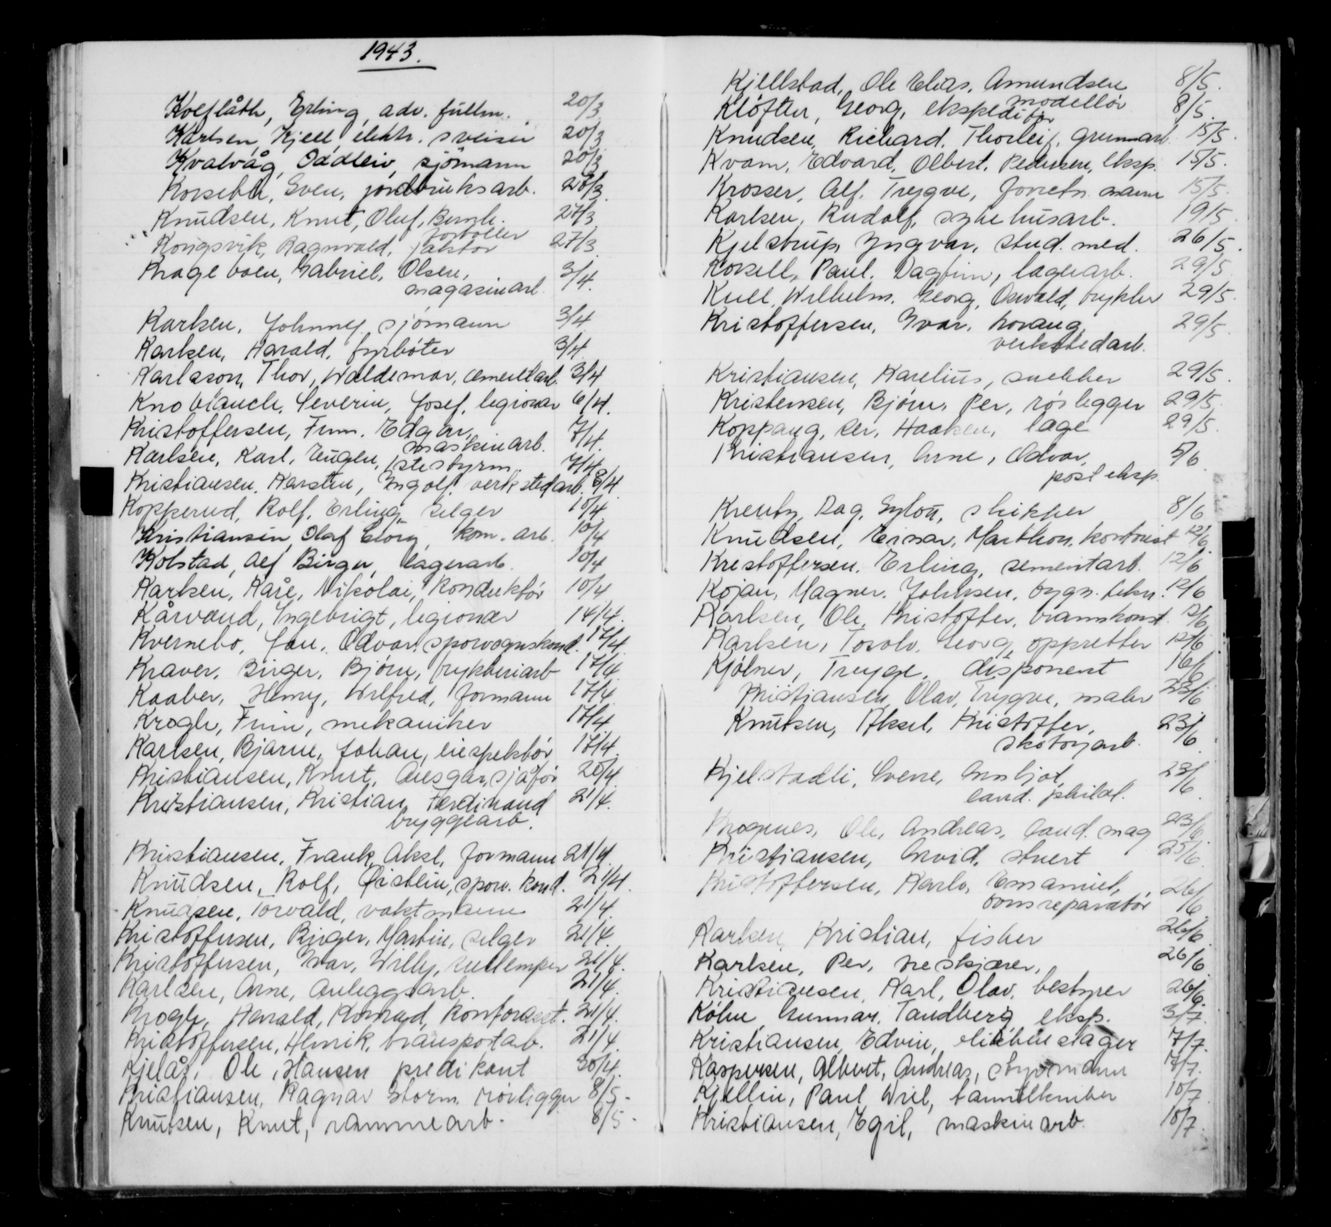 1943.
Kolflåth, Erling, adv. fullm. 20/3
Karlsen, Kjell, elektr. sveiser 20/3
Kvalvåg, Oddleiv, sjømann 20/3
Korsebø, Sven, jordbruksarb. 20/3.
Knudsen, Knut, Oluf, Bergh. 27/3
Kongsvik, Ragnvald, 27/3
Krageboen, Gabriel, Olsen,
magasinarb. 3/4.
Karlsen, Johnney, sjømann 3/4
Karlsen, Harald, fyrbøter 3/4
Karlsson, Thor, Waldemar, sementarb. 3/4
Knoblauch, Severin, Josef, legionær 6/4.
Kristoffersen, Finn, Edgar, 7/4.
maskinarb.
Karlsen, Karl, Eugen, 1ste styrm. 7/4
Kristiansen, Karsten, Ingolf, verkstedarb. 8/4
Kopperud, Rolf, Erling, selger 10/4
Kristiansen Olaf Georg, kom. arb. 10/4
Kolstad, Alf Birger, lagerarb. 10/4
Karlsen, Kåre, Nikolai, konduktør 10/4
Kårvand, Ingebrigt, legionær 14/4.
Kvernebo, Jan, Odvar, sporvognskond. 17/4
Kraver, Birger, Bjørn, trykkeriarb 17/4
Kaaber, Henry, Wilfred, formann 17/4
Krogh, Finn, mekaniker 17/4
Karlsen, Bjarne, Johan, inspektør 17/4.
Kristiansen, Knut, Ansgar, sjåfør 20/4
Kristiansen, Kristian, Ferdinand 21/4.
bryggearb.
Kristiansen, Frank, Aksl, formann 21/4
Knudsen, Rolf, Øistein, sporv. kond. 21/4.
Knudsen, Torvald, vaktmann 21/4.
Kristoffersen, Birger, Martin, selger 21/4.
Kristoffersen, Ivar, Willy, rullemper 21/4.
Karlsen, Arne, anleggsarb. 21/4.
Krogh, Harald, Konrad, kontorasst. 21/4.
Kristoffersen, Henrik, transportarb. 21/4.
Kjelås, Ole, Hansen predikant 30/4.
Kristiansen, Ragnar Storm rørlegger 8/5-
Knutsen, Knut, rammearb. 8/5-
Kjellstad, Ole Elias, Amundsen 8/5.
modellør
Kløften, Georg, ekspeditør 8/5
Knudsen, Richard, Thorleif, grunnarb 15/5.
Kvam, Edvard, Olbert, Pedersen, eksp. 15/5.
Krosser, Alf, Trygve, forretn. mann 15/5.
Karlsen, Rudolf, sykehusarb. 19/5.
Kjelstrup, Yngvar, stud. med. 26/5.
Korsell, Paul, Dagfinn, lagerarb. 29/5.
Kull, Wilhelm, Georg, Oswald, trykker 29/5.
Kristoffersen, Ivar, 29/5
verkstedarb.
Kristiansen, Karelius, snekker 29/5.
Kristensen, Bjørn, Per, rørlegger 29/5.
Koppang, Per, Haakon, lage 29/5.
Kristiansen, Arne, Odvar, 5/6
post eksp.
Kreutz, Dag, Gylva, skipper 8/6
Knudsen, Einar, Marthon, kontorist 12/6
Kristoffersen, Erling, sementarb. 12/6
Kojan, Magner, Johnsen, bygn. tekn. 12/6
Karlsen, Ole, Kristoffer, brannkonst 12/6
Karlsen, Torolv, Georg, oppretter 12/6
Kjølner, Trygve, disponent 16/6
Kristiansen, Olav, Trygve, maler 23/6
Knutsen, Aksel, Kristoffer, 23/6.
skotøyarb.
Kjelstadli, Sverre, Ansbjøt, 23/6.
cand. philol.
Krogenes, Ole, Andreas, Cand. mag 23/6
Kristiansen, Arvid, stuert 25/6.
Kristoffersen, Karlo, Emanuel, 26/6
ovnsreparatør
Karlsen, Kristian, fisker 26/6
Karlsen, Per, treskjærer, 26/6
Kristiansen, Karl, Olav, bestyrer 26/6.
Køhn Gunnar, Tandberg eksp. 3/7
Kristiansen, Edvin, 7/7.
Kaspersen, Albert, Andreas, styrmann 7/7.
Kjellin, Paul Wiel, tanntekniker 10/7
Kristiansen, Egil, maskinarb. 10/7.